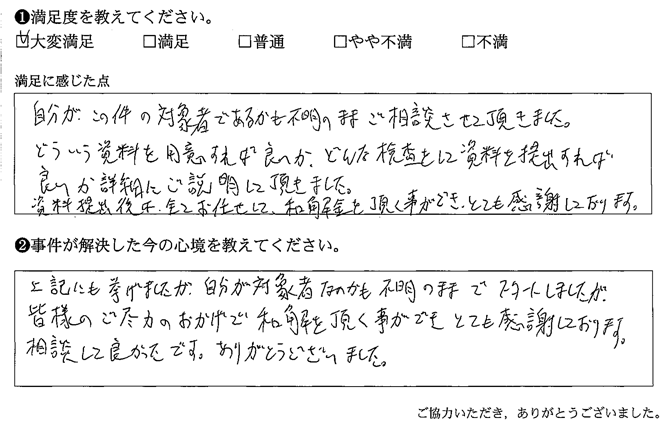 ❶満足度を教えてください。
☑大変満足 □満足 □普通 □やや不満 □不満
満足に感じた点
自分がこの件の対象者であるかも不明のままご相談させて頂きました。
どういう資料を用意すれば良いか、どんな検査をして資料を提出すれば
良いか詳細にご説明して頂きました。
資料提出後は、全てお任せして、和解金を頂く事ができ、とても感謝しております。
❷事件が解決した今の心境を教えてください。
上記にも挙げましたが、自分が対象者なのかも不明のままでスタートしましたが、
皆様のご尽力のおかげで和解を頂く事ができとても感謝しております。
相談して良かったです。ありがとうございました。
ご協力いただき，ありがとうございました。